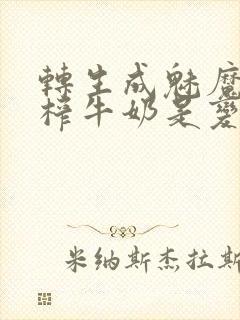 轉生成魅魔
榨牛奶是變
米纳斯杰拉斯